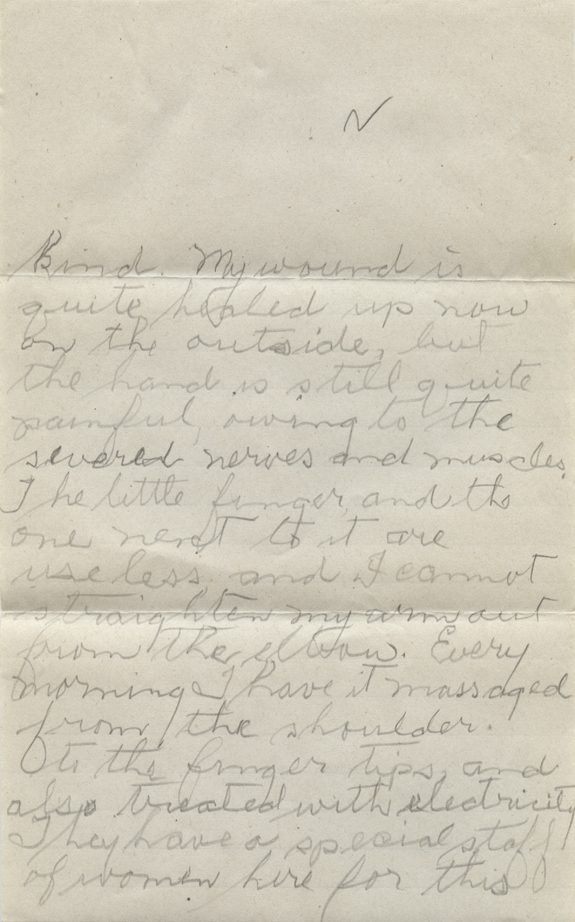 V
kind. My wound is
quite healed up now
on the outside, but
the hand is still quite
painful, owing to the
severed nerves and muscles.
The little finger and the
one next to it are
useless and I cannot
straighten my arm out
from the elbow. Every
morning I have it massaged
from the shoulder.
to the finger tips, and
also treated with electricity
They have a special staff
of women here for this